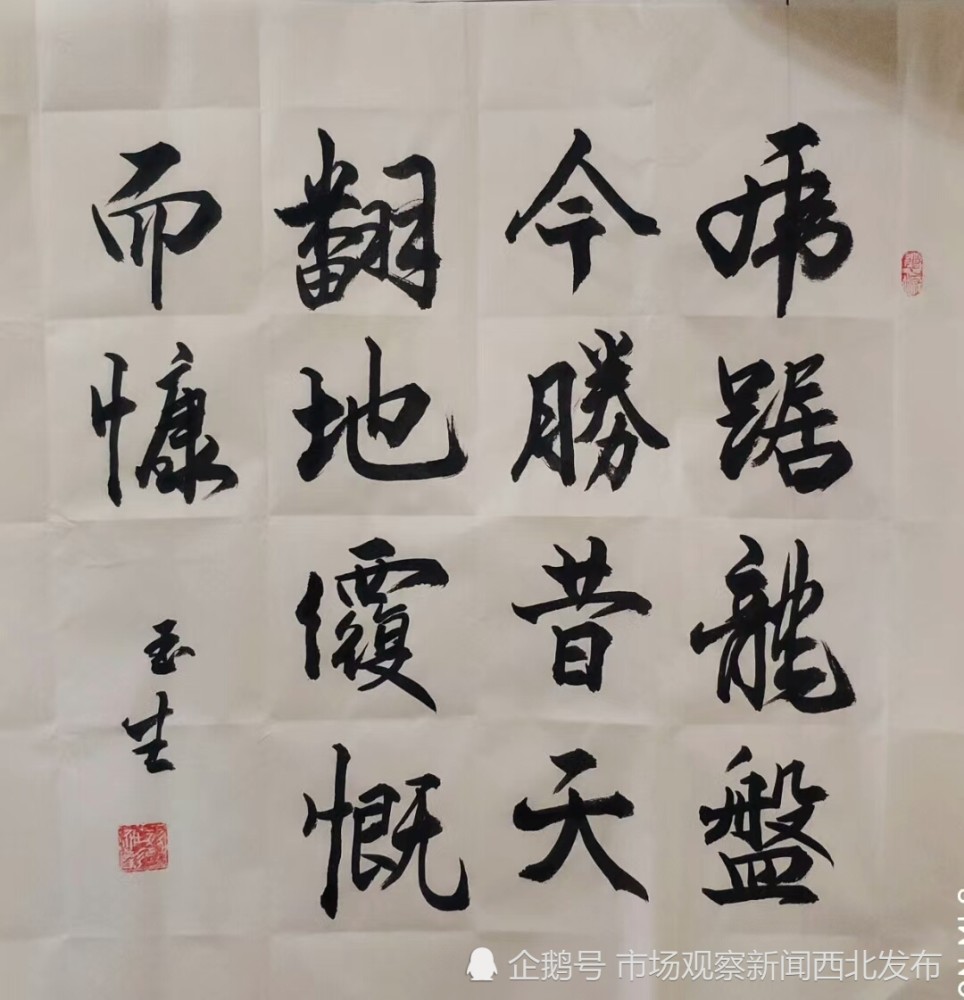 虎踞龍盤
今勝昔天
翻地覆慨
而慷
玉生
企鹅号 市场观察新闻西北发布